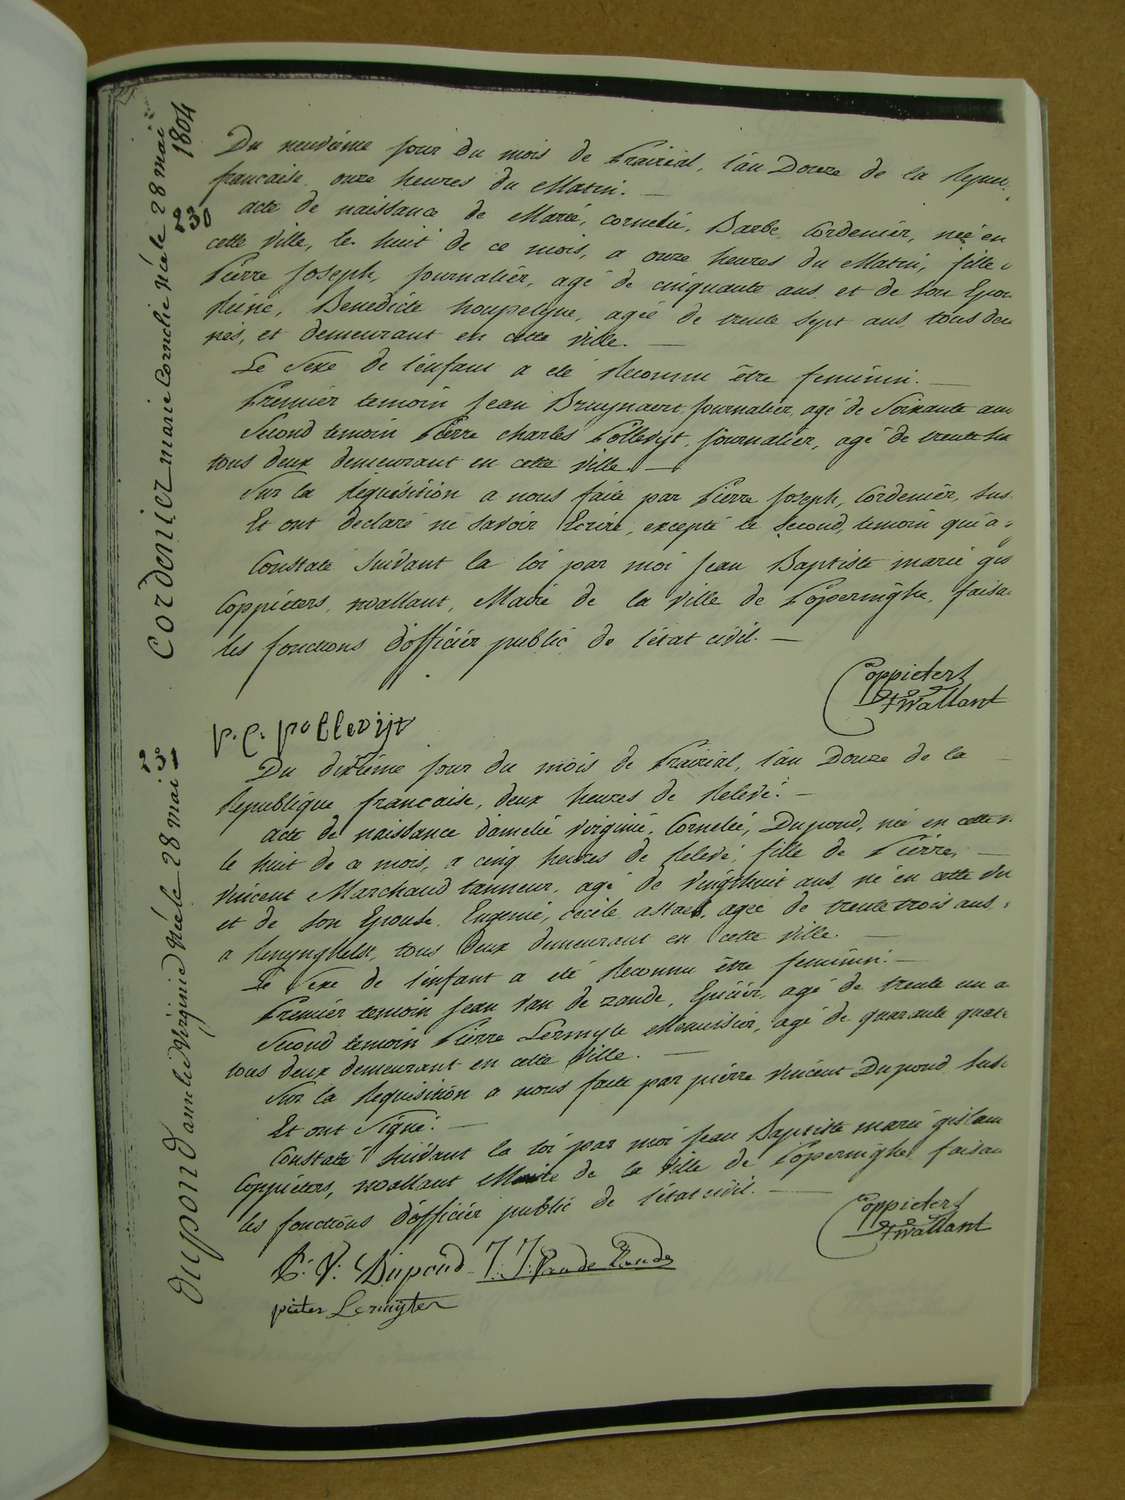 1804
Cordenier marie Cornelie Née le 28 mai
230
Du neuvième jour du mois de Prairial, l'an Douze de la Repu
francaise onze heures du Matin.
acte de naissance de Marie, Cornelie, Barbe Cordenier, née en
cette Ville, le huit de ce mois, a onze heures du Matin, fille
Pierre Joseph, journalier, agé de cinquante ans et de son Epou
Benedicte houpelyne, agée de trente sept ans, tous deu
nés, et demeurant en cette Ville.
Le Sexe de l'enfant a eté Reconnu être feminin.
Premier temoin Jean Bruynaert, journalier, agé de Soixante ans
Second temoin Pierre Charles Pollevijt, journalier, agé de trente
tous deux demeurant en cette Ville.
Sur la Requisition a nous faite par Pierre Joseph, Cordenier, Sus
Et ont declaré ne Savoir Ecrire, excepté le Second, temoin qui a
Constaté Suivant la loi par moi Jean Baptiste marie gis
Coppieters, Wallant, Maire de la Ville de Poperinghe, faisa
les fonctions d'officier public de l'état civil.
Coppieters
Twallant
p. C. pollevijt
231
dupond amelie Virginie Née le 28 mai
Du dixième jour du mois de Prairial, l'an Douze de la
Republique francaise, deux heures de Relevé.
acte de naissance d'amelie Virginie, Cornelie, Dupond, née en cette v
le huit de ce mois, a cinq heures de Relevé, fille de Pierre,
Vincent Marchand tanneur, agé de Vingthuit ans, né en cette Vil
et de Son Epouse, Eugenie, Cecile agée de trente trois ans,
a Renynghelst, tous deux demeurant en cette Ville.
Le Sexe de l'enfant a eté Reconnu être feminin.
Premier temoin Jean Van de Zande, Epicier, agé de trente un a
Second temoin Pierre Lermyte Menuisier, agé de quarante quat
tous deux demeurant en cette Ville.
Sur la Requisition a nous faite par pierre Vincent Dupond Sus
Et ont Signé.
Constaté Suivant la loi par moi Jean Baptiste marie gislain
Coppieters, Wallant Maire de la Ville de Poperinghe faisa
les fonctions d'officier public de l'état civil.
Coppieters
Twallant
P. V. Dupond J. J. Van de Zande
pieter Lermyter